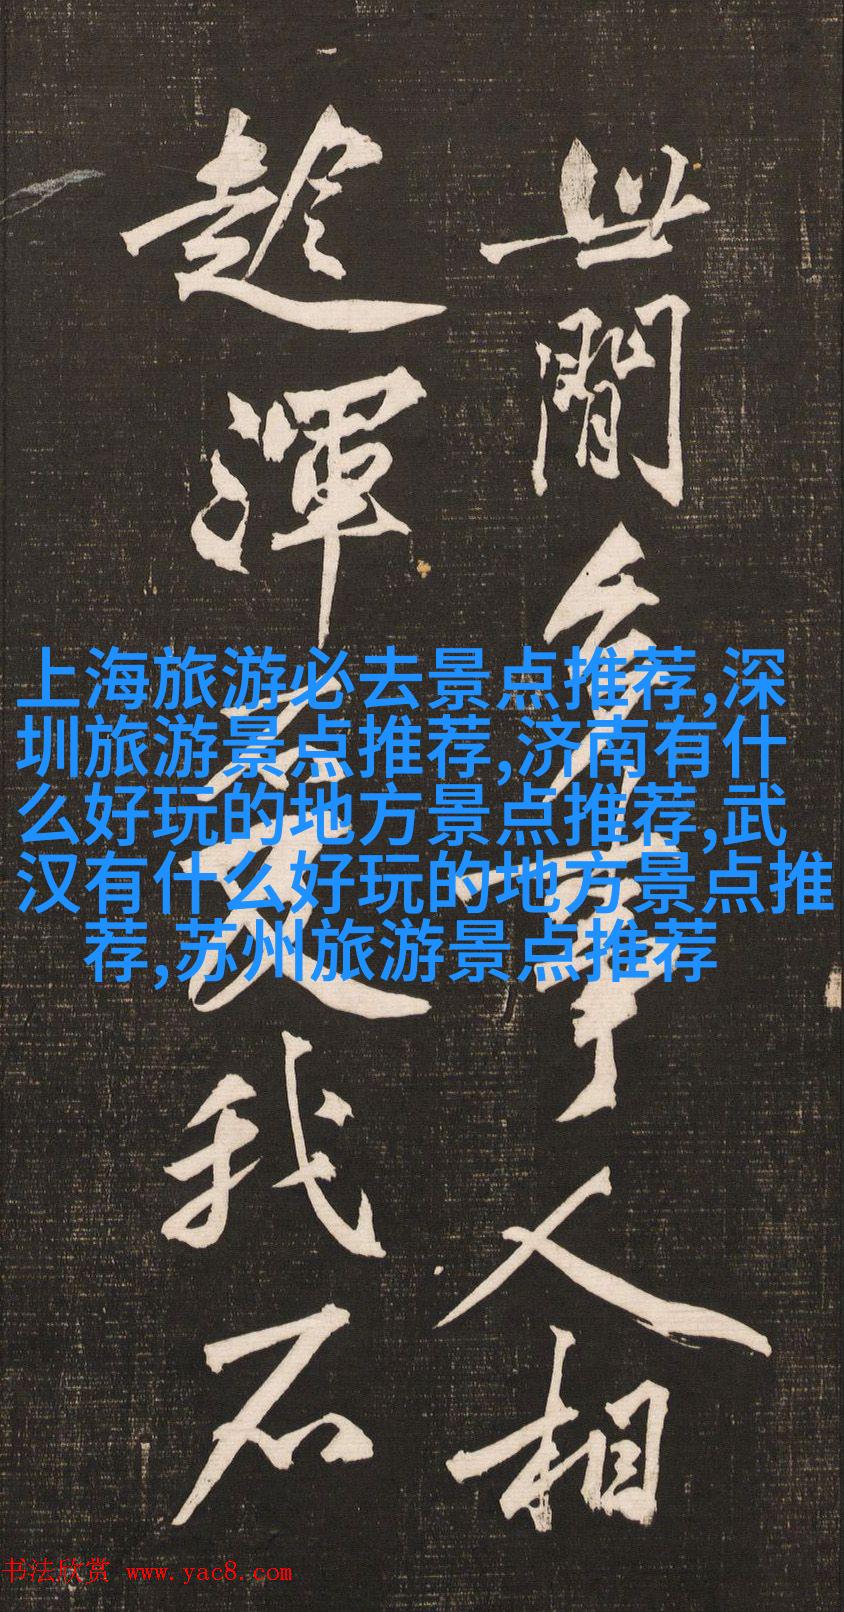 世間多事人相
趁渾不是我不
上海旅游必去景点推荐,深
圳旅游景点推荐,济南有什
么好玩的地方景点推荐,武
汉有什么好玩的地方景点推
荐,苏州旅游景点推荐
书法欣赏 www.yac8.com